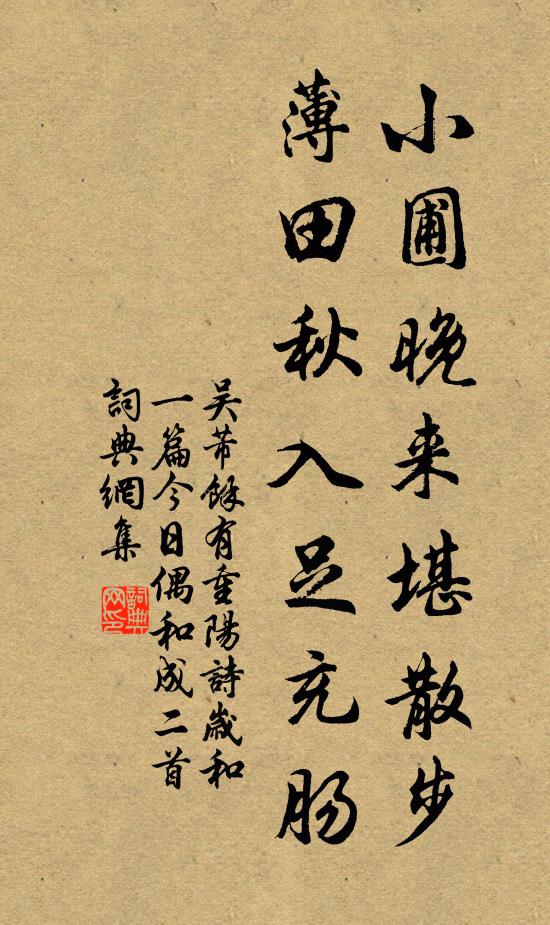 小圃晚来堪散步
薄田秋入足充肠
吴芾餘有重陽詩歲和
一篇今日偶和成二首
詞典網集
詞典
网印